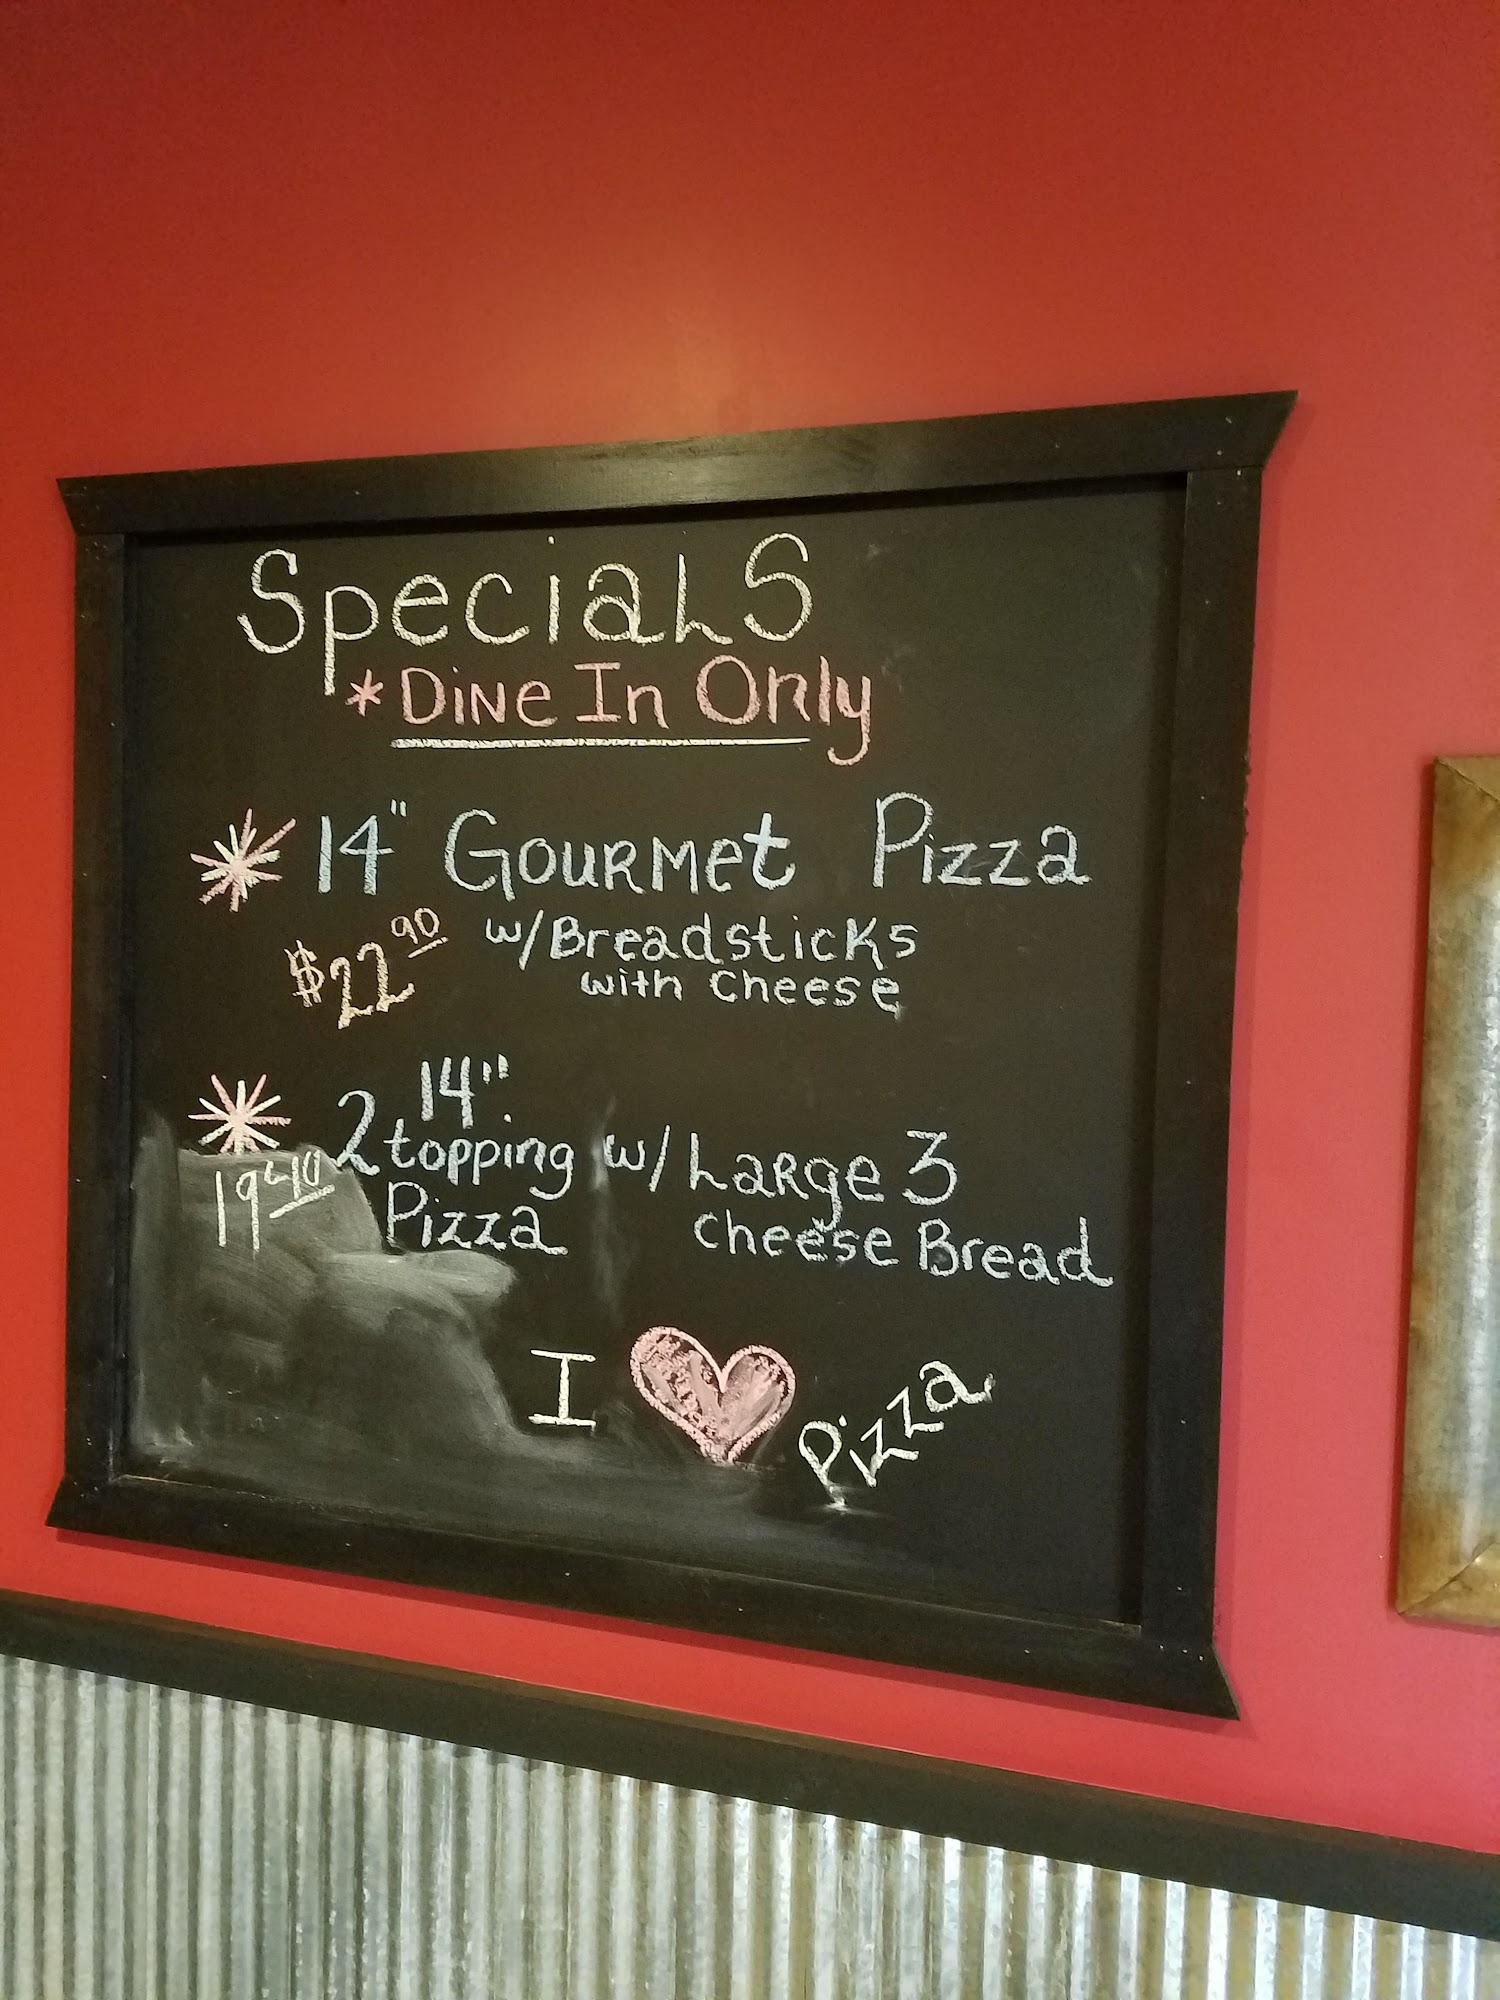 Specials
*Dine In Only
14" Gourmet Pizza
$22.90 w/Breadsticks
with cheese
14"
2 topping w/ Large 3
Pizza cheese Bread
I ♥ Pizza